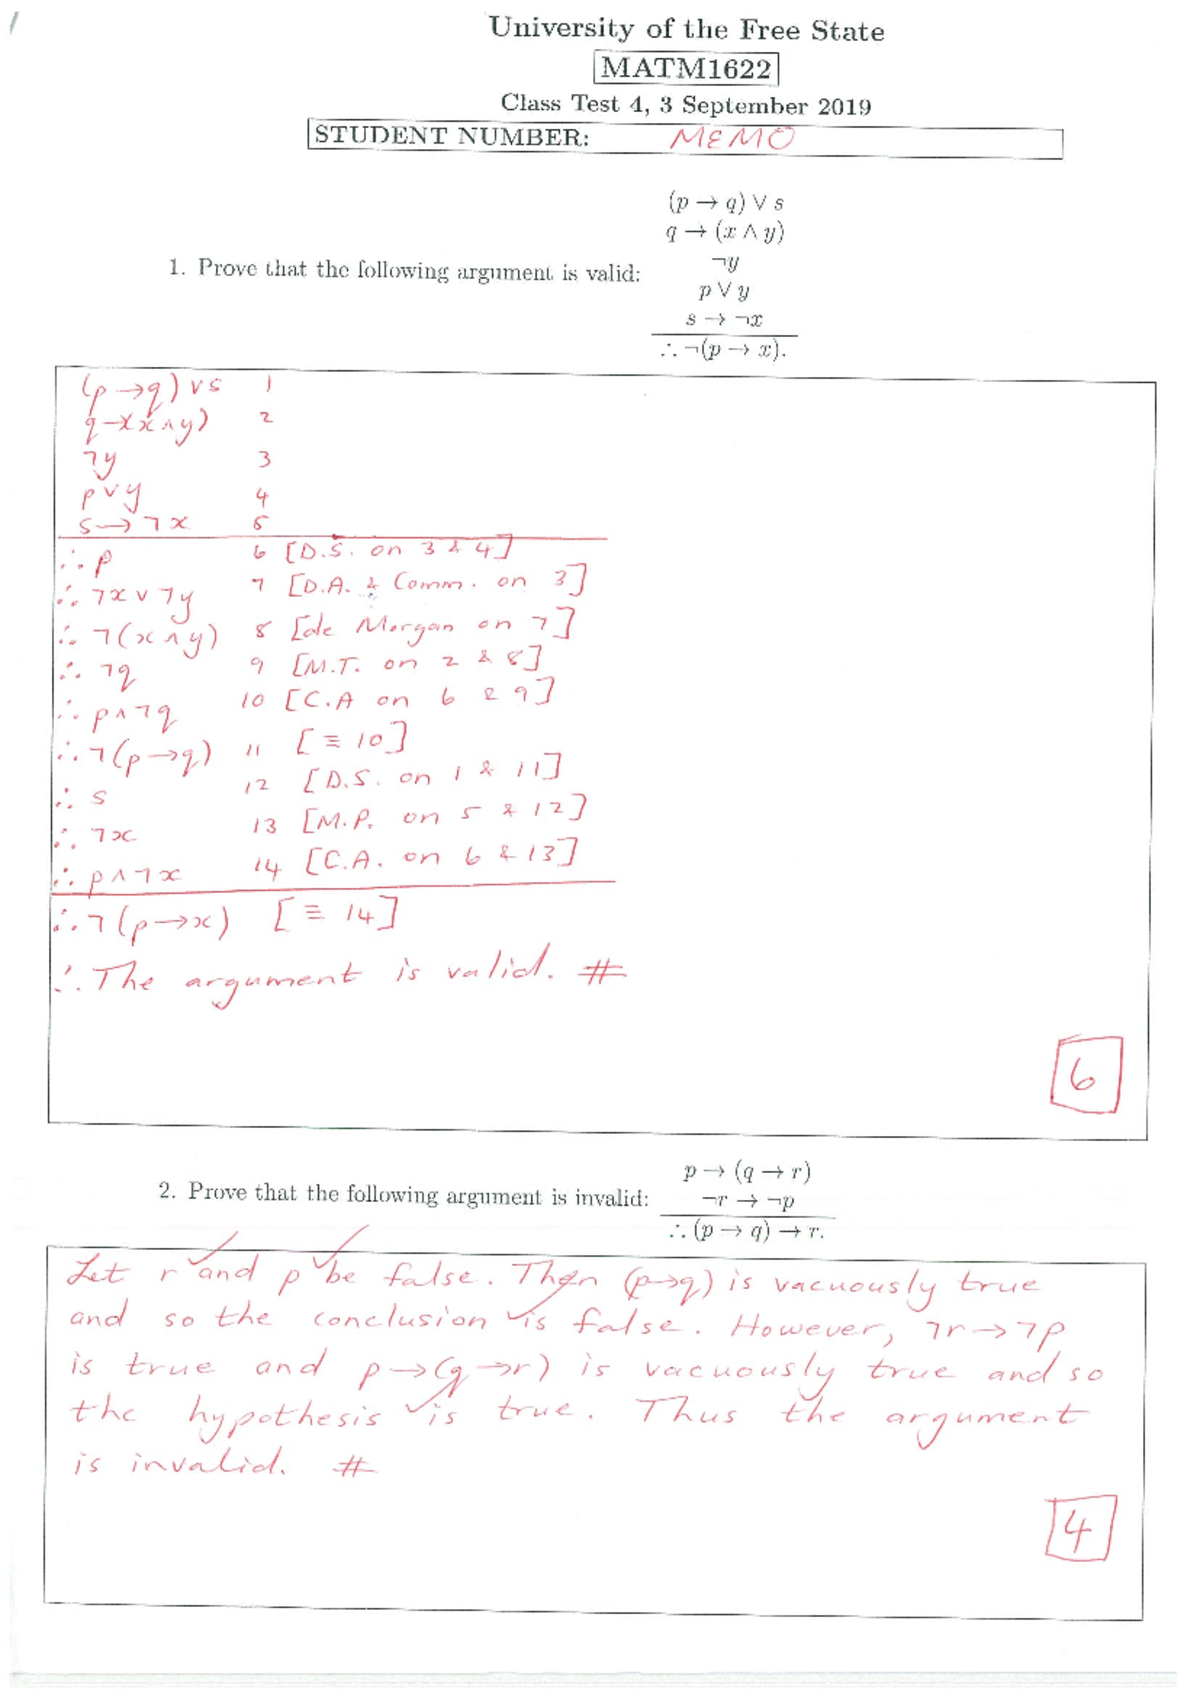 University of the Free State
MATM1622
Class Test 4, 3 September 2019
STUDENT NUMBER: MEMO
(p → q) ∨ s
q → (x ∧ y)
1. Prove that the following argument is valid: ¬y
p ∨ y
s → ¬x
∴ ¬(p → x).
(p → q) ∨ s 1
q → (x ∧ y) 2
¬y 3
p ∨ y 4
s → ¬x 5
∴ p 6 [D.S. on 3 & 4]
∴ ¬x ∨ ¬y 7 [D.A. & Comm. on 3]
∴ ¬(x ∧ y) 8 [de Morgan on 7]
∴ ¬q 9 [M.T. on 2 & 8]
∴ p ∧ ¬q 10 [C.A on 6 & 9]
∴ ¬(p → q) 11 [≡ 10]
∴ s 12 [D.S. on 1 & 11]
∴ ¬x 13 [M.P. on 5 & 12]
∴ p ∧ ¬x 14 [C.A. on 6 & 13]
∴ ¬(p → x) [≡ 14]
∴ The argument is valid. #
6
p → (q → r)
2. Prove that the following argument is invalid: ¬r → ¬p
∴ (p → q) → r.
Let r and p be false. Then (p → q) is vacuously true
and so the conclusion is false. However, ¬r → ¬p
is true and p → (q → r) is vacuously true and so
the hypothesis is true. Thus the argument
is invalid. #
4